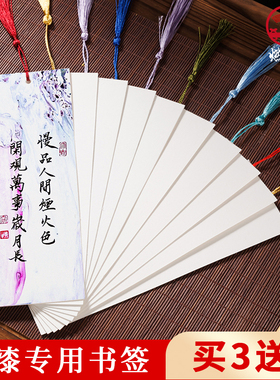 慢品人間煙火色
閑观萬事歲月長
漆专用书签
买3送